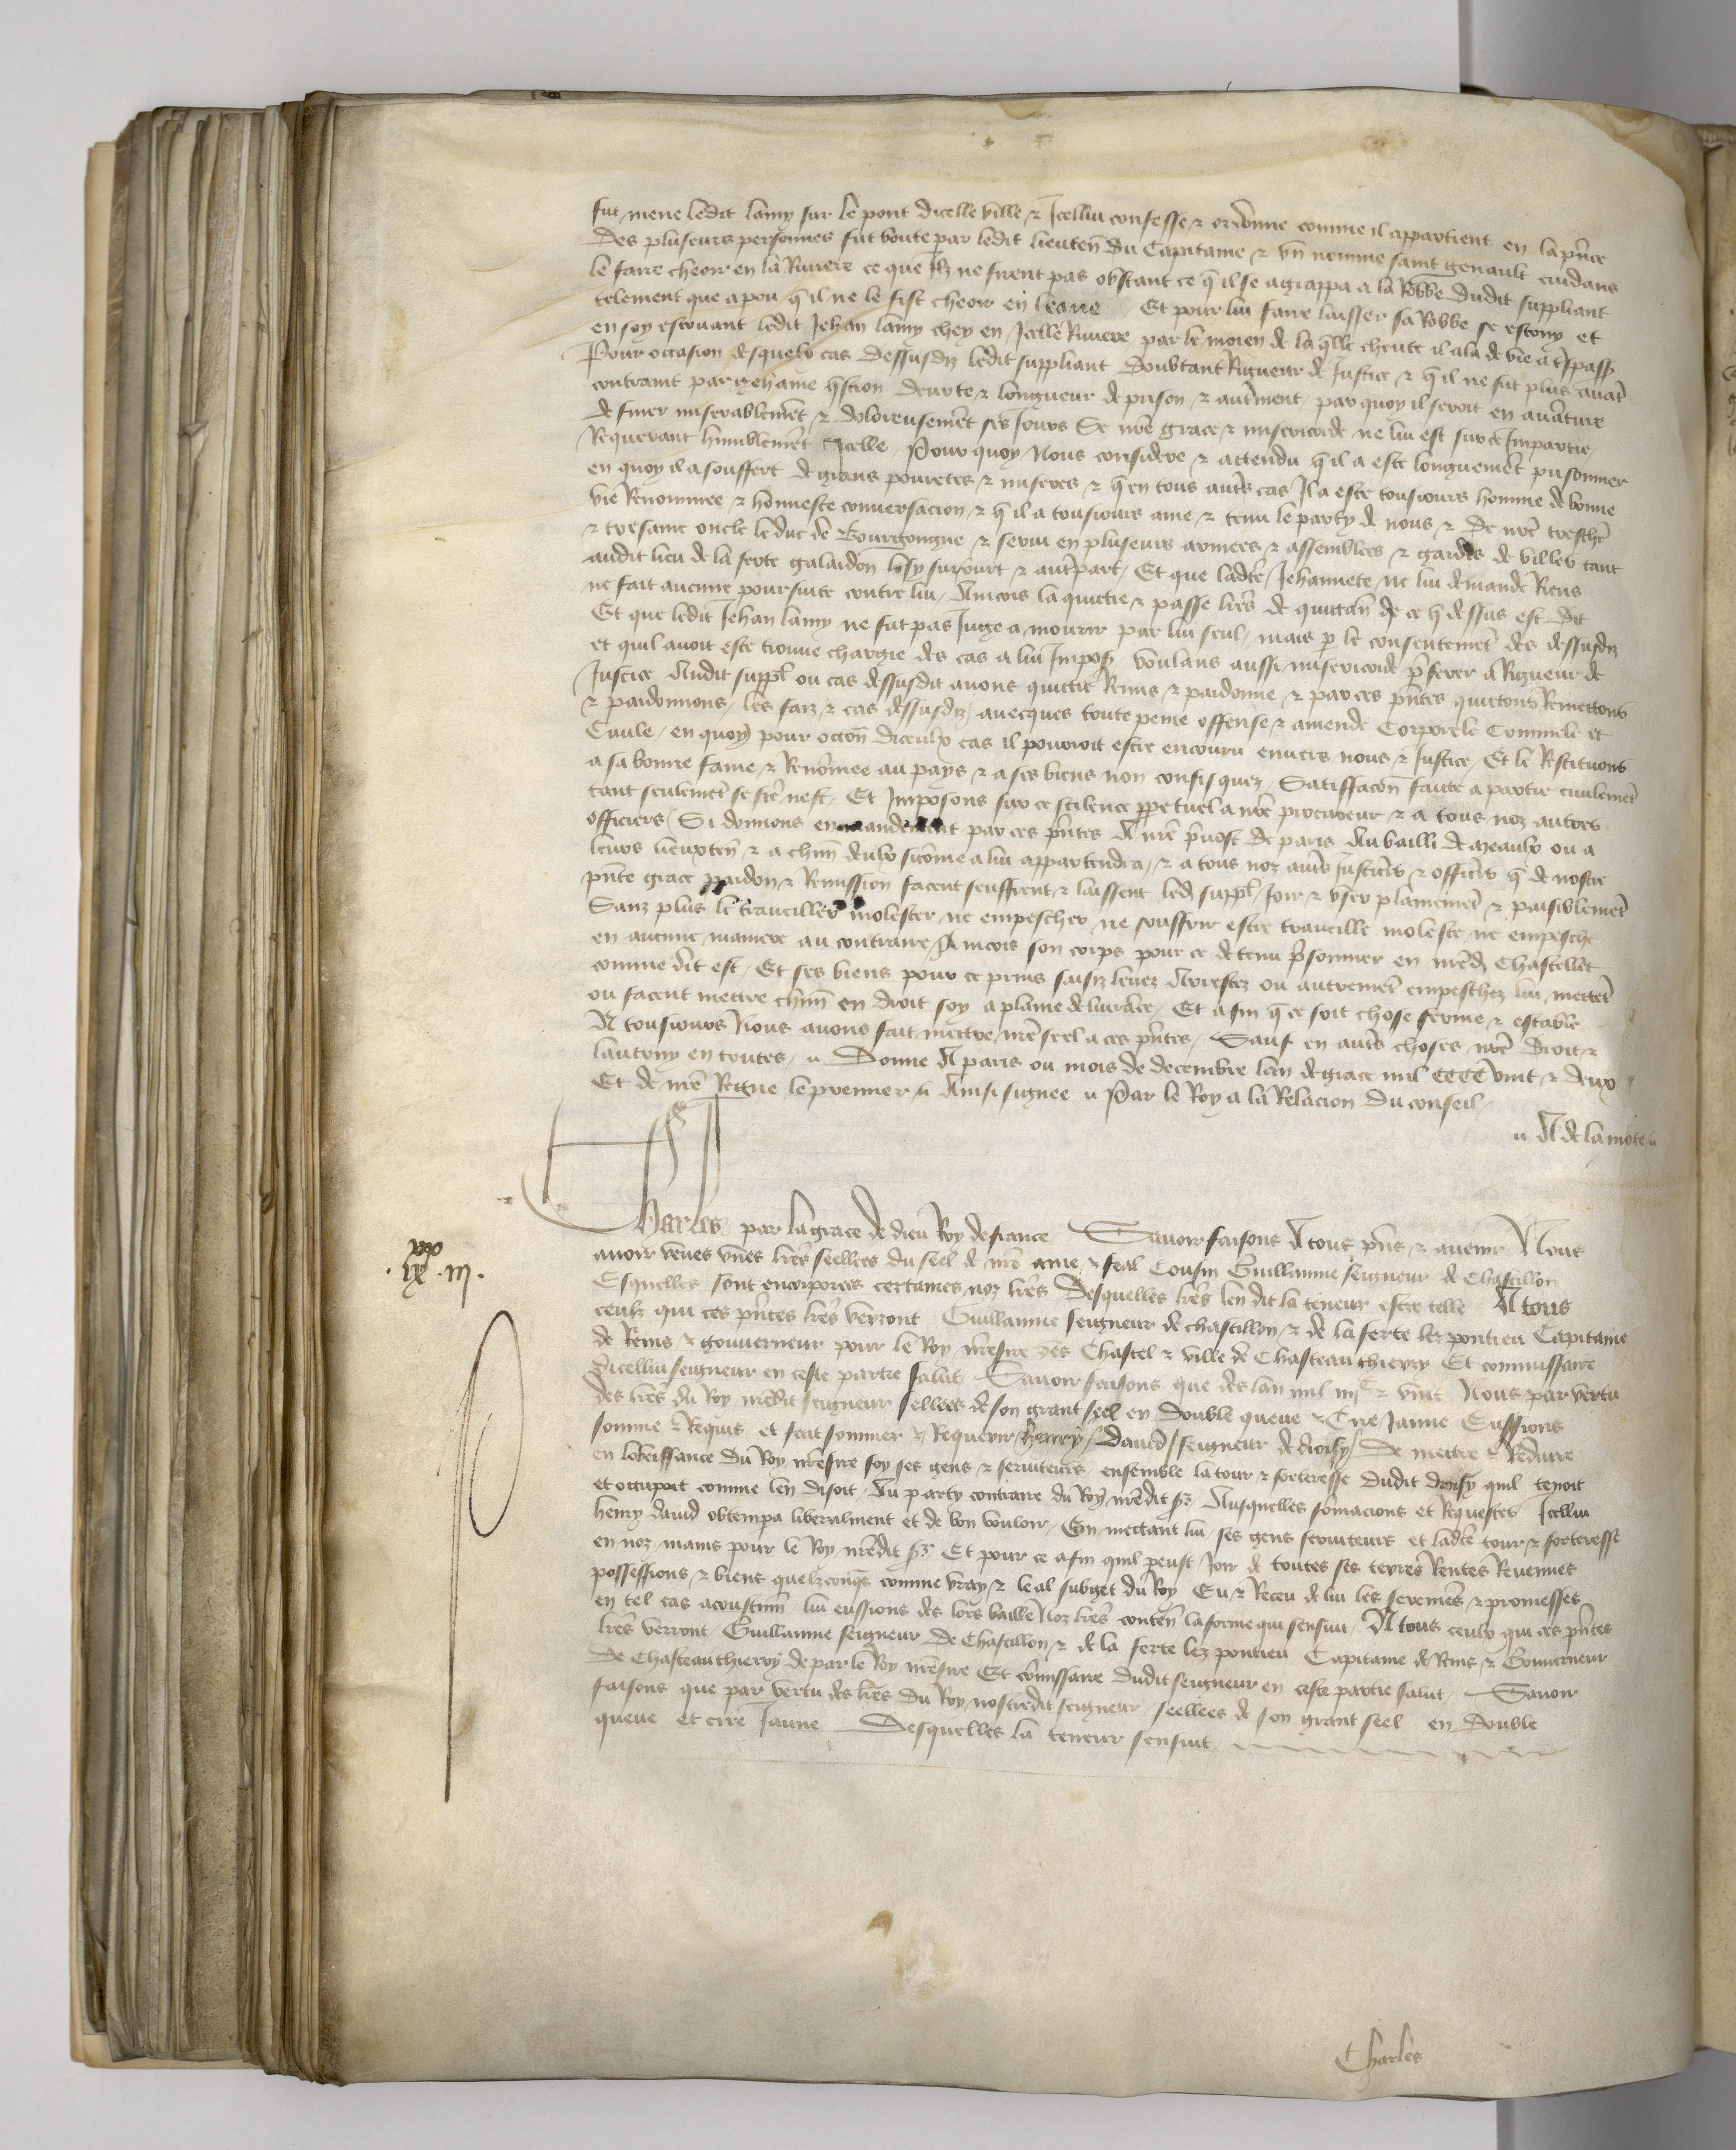 fut mene ledit lamy sur le pont dicelle ville & Icellui confesse & ordonne comme il appartient en la pñce
des pluseurs personnes fut boute par ledit lieuteñ du Capitaine & vñ nomme saint genault cuidans
le faire cheoir en la Riviere ce que Ilz ne firent pas obstant ce q̃ il se agrappa a la Robbe dudit suppliant
telement que a pou q̃ il ne le fist cheoir en leaue Et pour lui faire laissier sa Robbe se estouy et
en soy escouant ledit Jehan lamy chey en Icelle Riviere par le moien de laq̃lle cheute il ala de vie a t̃spass
Pour occasion desquelx cas dessusdiz ledit suppliant doubtant Rigueur de Justice & q̃ il ne fut plus avãt
contraint par gehaine q̃stion durte & longueur de prison & autrẽment par quoy il seroit en avãture
de finer miserablemẽt & doloreusemẽt ses Jours Se nrẽ grace & misericorde ne lui est sur ce Impartie
Requerant humblemẽt Icelle / Pour quoy Nous considere & attendu q̃ il a este longuemẽt prisonnier
en quoy il a souffert de grans povretes & miseres & q̃ en tous autrs cas Il a este tousiours homme de bonne
vie Renommee & honneste conversacion & q̃ il a tousiours ame & tenu le party de nous & de nrẽ treschẽr
& tresame oncle le duc de Bourgongne & servi en pluseurs armees & assemblees & gardes de villes tant
audit lieu de la ferte galardon lisy sur ourt & autrpart Et que ladte Jehannete ne lui demande Riens
ne fait aucune poursuite contre lui Aincois la quitte & passe lrẽs de quittañ de ce q̃ dessus est dit
Et que ledit Jehan lamy ne fut pas Juge a mourir par lui seul mais p̱ le consentemẽt des dessusdiz
et quil avoit este trouve chargie des cas a lui Imposz voulans aussi misericorde p̃ferer a Rigueur de
Justice Audit suppl̃ ou cas dessusdit avons quitte Remis & pardonne & par ces pñtes quittons Remettons
& pardonnons les faiz & cas dessusdiz avecques toute peine offense & amende Corporele Criminele et
Civile en quoy pour occoñ diceulx cas il pourroit estre encouru envers nous & Justice Et le Restituons
a sa bonne fame & Renõmee au pays & a ses biens non confisquez Satiffacoñ faicte a partie civilemẽt
tant seulemẽt se fctẽ nest Et Imposons sur ce scilence pp̱etuel a nrẽ procureur & a tous noz autres
officiers Si donnons en mandement par ces pñtes A nrẽ p̃vost de paris Au bailli de meaulx ou a
leurs lieuxteñ & a chũn deulx sicõme a lui appartendra & a tous noz autrs Justiciẽrs & officiẽrs q̃ de nostre
pñte grace pardon & Remission facent seuffrent & laissent led̃ suppl̃ Joir & user plainemẽt & paisiblemẽt
Sanz plus le traveillier molester ne empescher ne souffrir estre traveille moleste ne empeschẽ
en aucune maniere au contraire Aincois son corps pour ce detenu p̃sonnier en nrẽd Chastellet
comme dit est Et ses biens pour ce prins saisiz levez Arrestez ou autremẽt empeschez lui mettẽt
ou facent mettre chũn en droit soy a plaine delivrãce Et afin q̃ ce soit chose ferme & estable
A tousiours Nous avons fait mettre nrẽ seel a ces pñtes Sauf en autrs choses nrẽ droit &
lautruy en toutes Donne A paris ou mois de decembre lan de grace mil CCCC vint & deux
Et de nrẽ Regne le premier Ainsi signee Par le Roy a la Relacion du conseil
A de lamote
Charles par la grace de dieu Roy de france Savoir faisons A tous pñs & avenir Nous
iiixx.xi.
avoir veues unes lrẽs seellees du seel de nrẽ ame & feal Cousin Guillaume seigneur de Chastillon
Esquelles sont encorporees certaines noz lrẽs Desquelles lrẽs len dit la teneur estre telle A tous
ceulx qui ces pñtes lrẽs verront Guillaume seigneur de chastillon & de la ferte lez pontieu Capitaine
de Reins & gouverneur pour le Roy nrẽsire des Chastel & ville de Chasteau thierry Et commissaire
dicellui seigneur en ceste partie salut Savoir faisons que des lan mil iiijC & vint Nous par vertu
des lrẽs du Roy nrẽdit seigneur sellees de son grant seel en double queue & Cire Jaune Eussions
somme & Requis et fait sommer & Requerir henry David seigneur de droisy De mettre & Reduire
en lobeissance du Roy nrẽsire soy ses gens & serviteurs ensemble la tour & forteresse dudit droisy quil tenoit
et occupoit comme len disoit Au party contraire du Roy nrẽdit sr Ausquelles sõmacions et Requestes Icellui
henry david obtempa liberalment et de bon vouloir En mettant lui ses gens serviteurs et ladtẽ tour & forteresse
en noz mains pour le Roy nrẽdit sr Et pour ce afin quil peust Joir de toutes ses terres Rentes Revenues
possessions & biens quelzconqs comme vray & leal subget du Roy Eu & Receu de lui les seremẽs & promesses
en tel cas acoustumẽ lui eussions des lors baille Noz lrẽs conteñ la forme qui sensuit A tous ceulx qui ces pñtes
lrẽs verront Guillaume seigneur de Chastillon & de la ferte lez pontieu Capitaine de Reins & Gouverneur
De Chasteauthierry de par le Roy nrẽsire Et cõmissaire dudit seigneur en ceste partie salut Savoir
faisons que par vertu des lrẽs du Roy nostredit seigneur seellees de son grant seel en double
queue et cire Jaune Desquelles la teneur sensuit
Charles